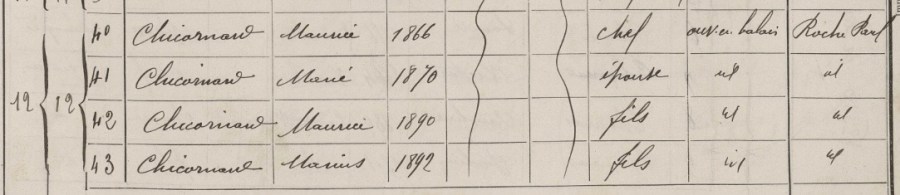 40 Chicornard Maurice 1866 chef ouv. en balais Roche Paul
12 12 41 Chicornard Marie 1870 épouse id id
42 Chicornard Maurice 1890 fils id id
43 Chicornard Marius 1892 fils id id